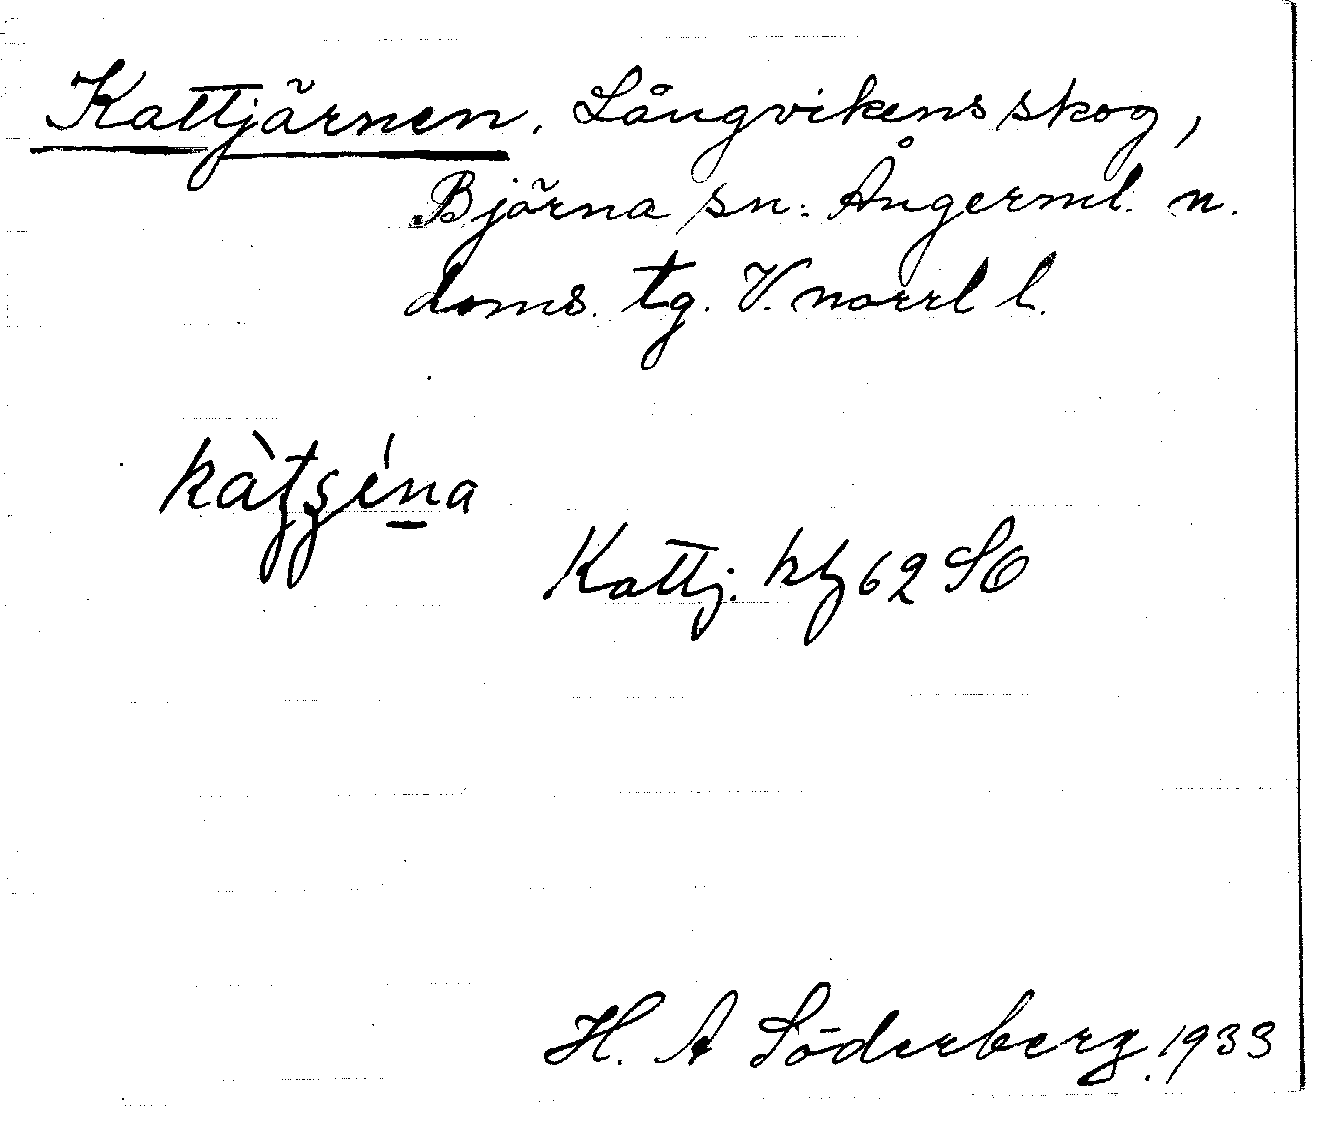 Kattjärnen. Långvikens skog,
Björna sn. Ångerml. n.
doms. tg. V. norrl l.
Kattj. kbl 62 SO
H. A Söderberg. 1933